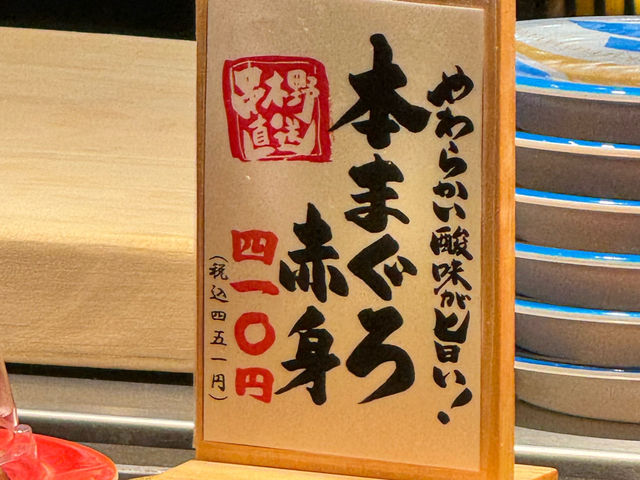 やわらかい酸味が旨い！
本まぐろ
赤身
串木野
直送
四一〇円
（税込四五一円）